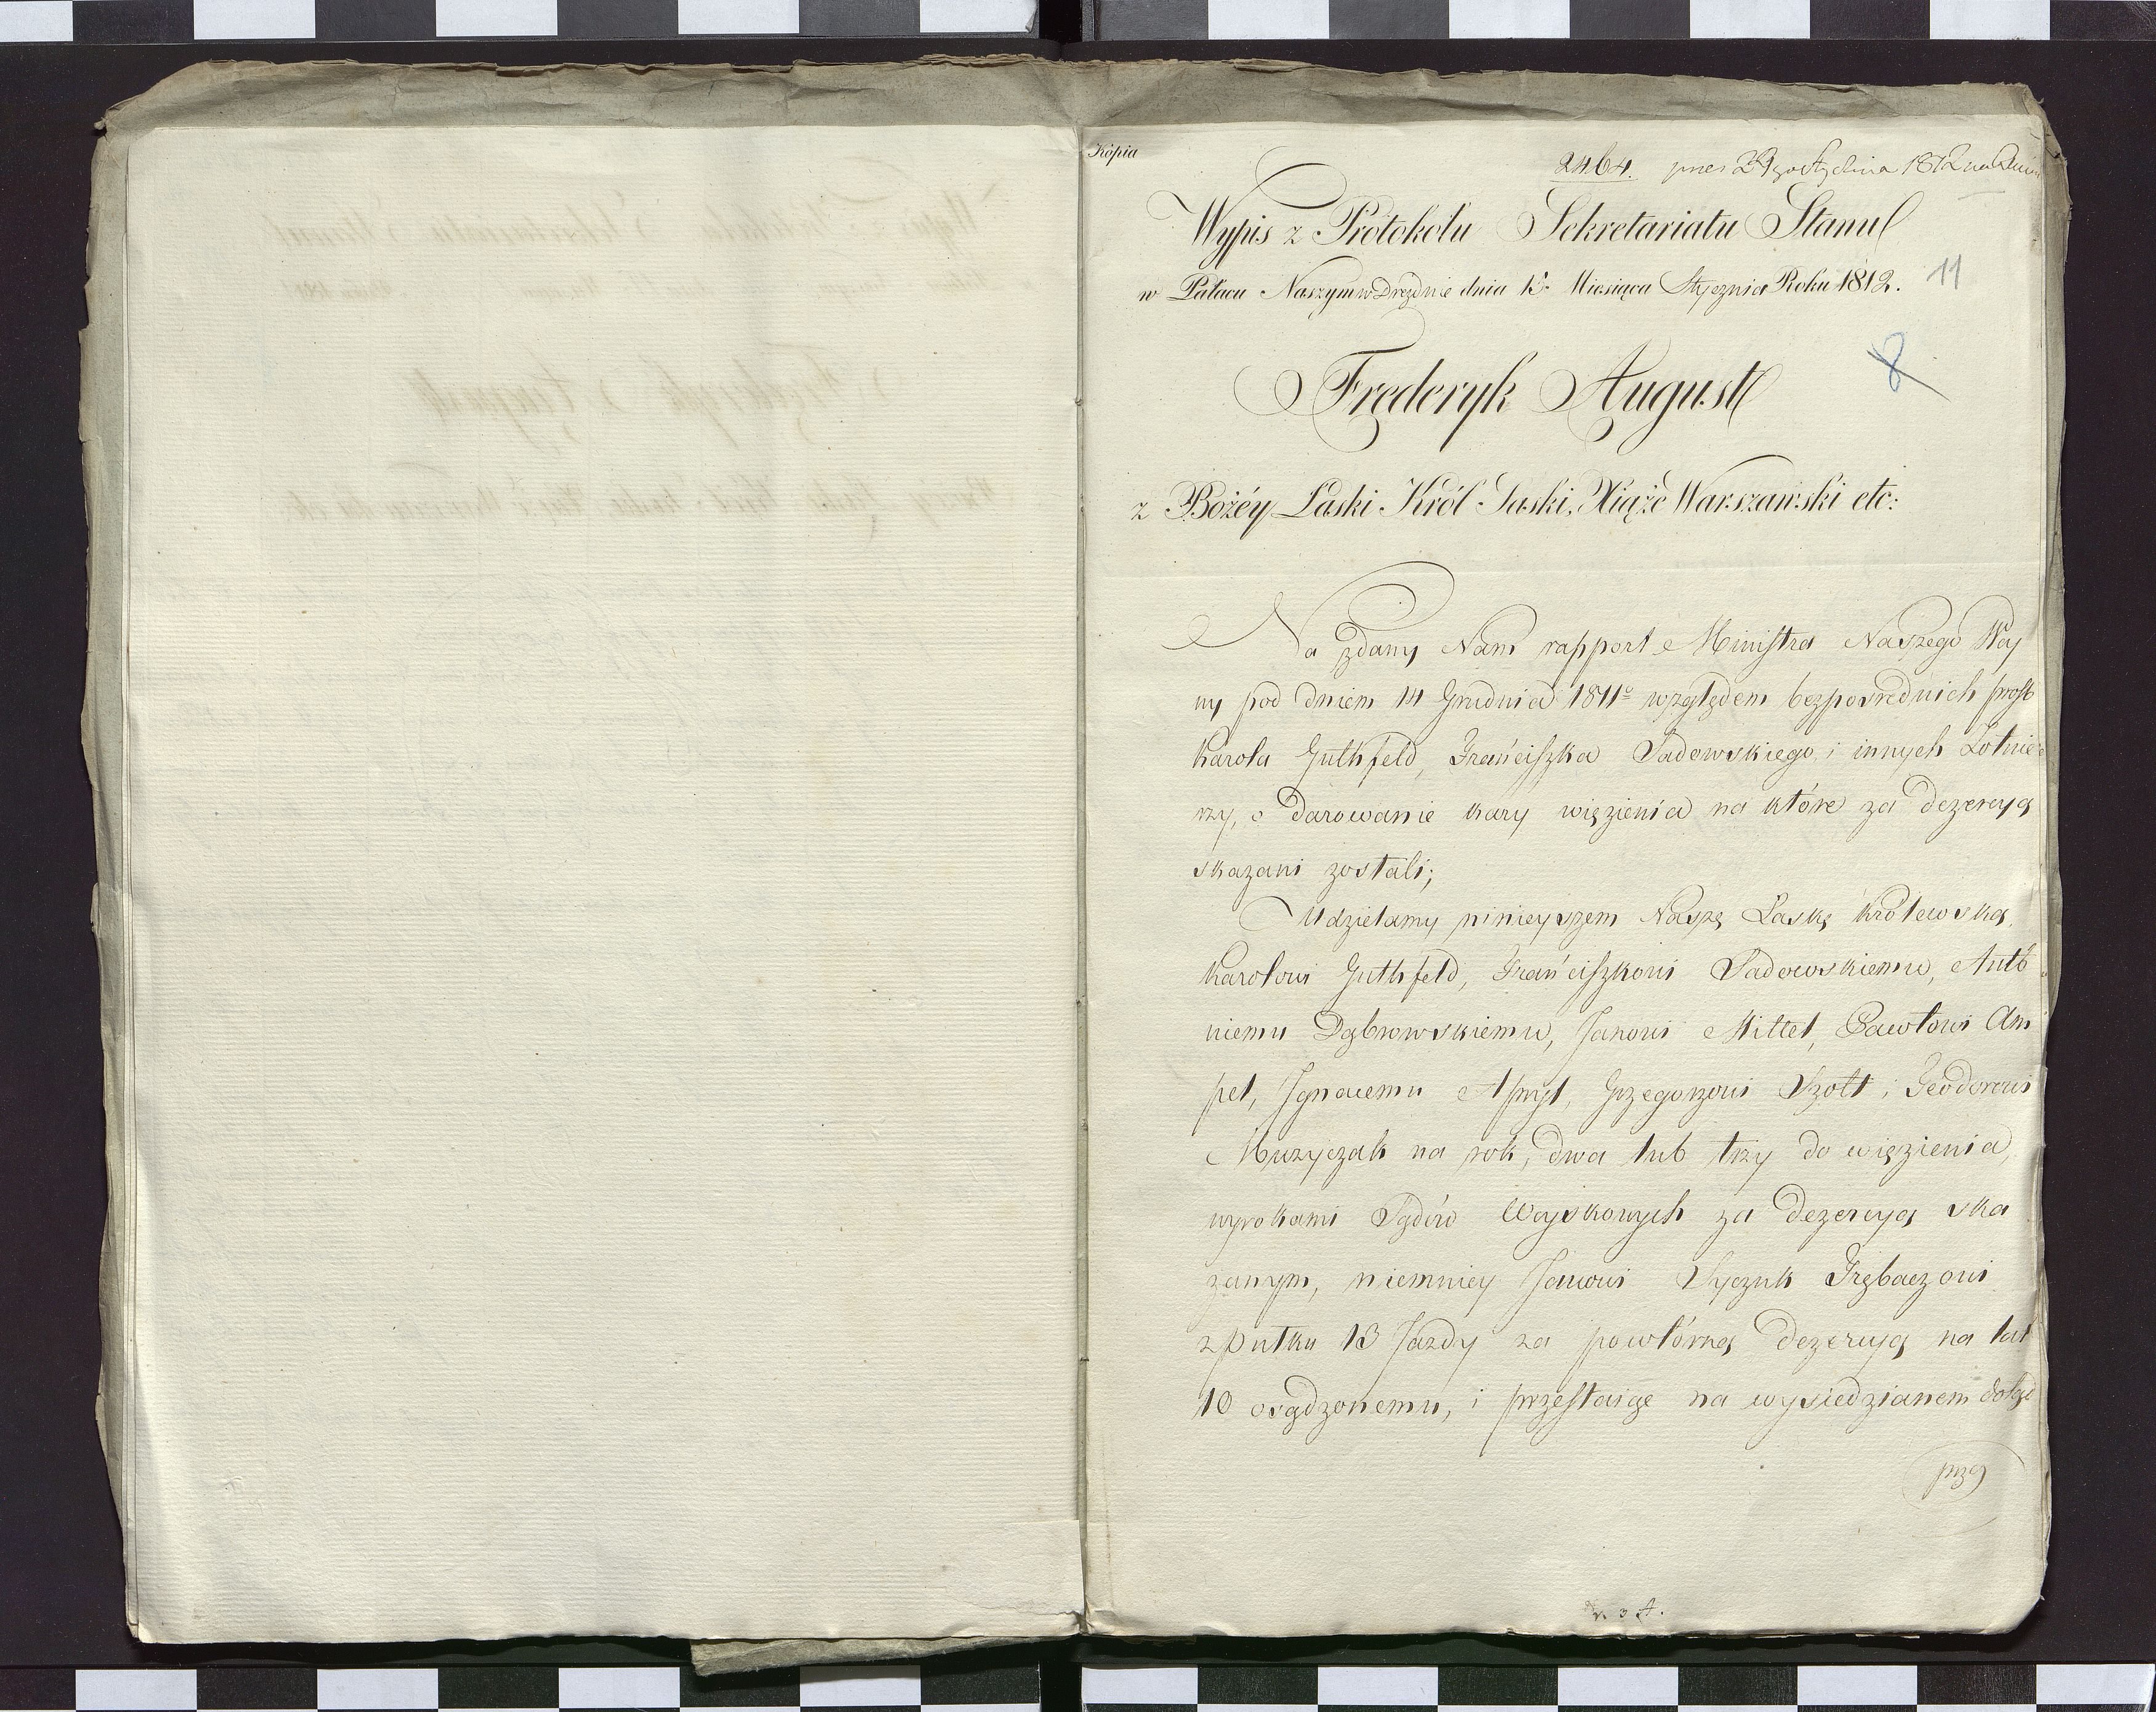 Kopia
2464.
Wypis z Protokołu Sekretariatu Stanu
w Pałacu Naszym w Dreznie dnia 15. Miesiąca Stycznia Roku 1812.
11
8
Fryderyk August
z Bożéy Łaski Król Saski, Xiąże Warszawski etc:
Na zdany Nam rapport Ministra Naszego Woy
ny pod dniem 14 Grudnia 1811º względem bezpośrednich prośb
Karola Guthfeld, Franciszka Sadowskiego i innych Żołnie
rzy, o darowanie kary więzienia na które za dezercyą
skazani zostali;
Udzielamy ninieyszem Naszę Łaskę Królewską
Karolowi Guthfeld, Franciszkowi Sadowskiemu, Anto
niemu Dąbrowskiemu, Janowi Mittel, Pawłowi Am
pel, Ignacemu Apryl, Grzegorzowi Szolt i Teodorowi
Muzyczak na rok, dwa lub trzy do więzienia,
wyrokami Sądów Woyskowych za dezercyą ska
zanym, niemniey Janowi Syczuk Trębaczowi
z pułku 13 Jazdy za powtórną dezercyą na lat
10 osądzonemu, i przestaiąc na wysiedzianem dotąd
przez